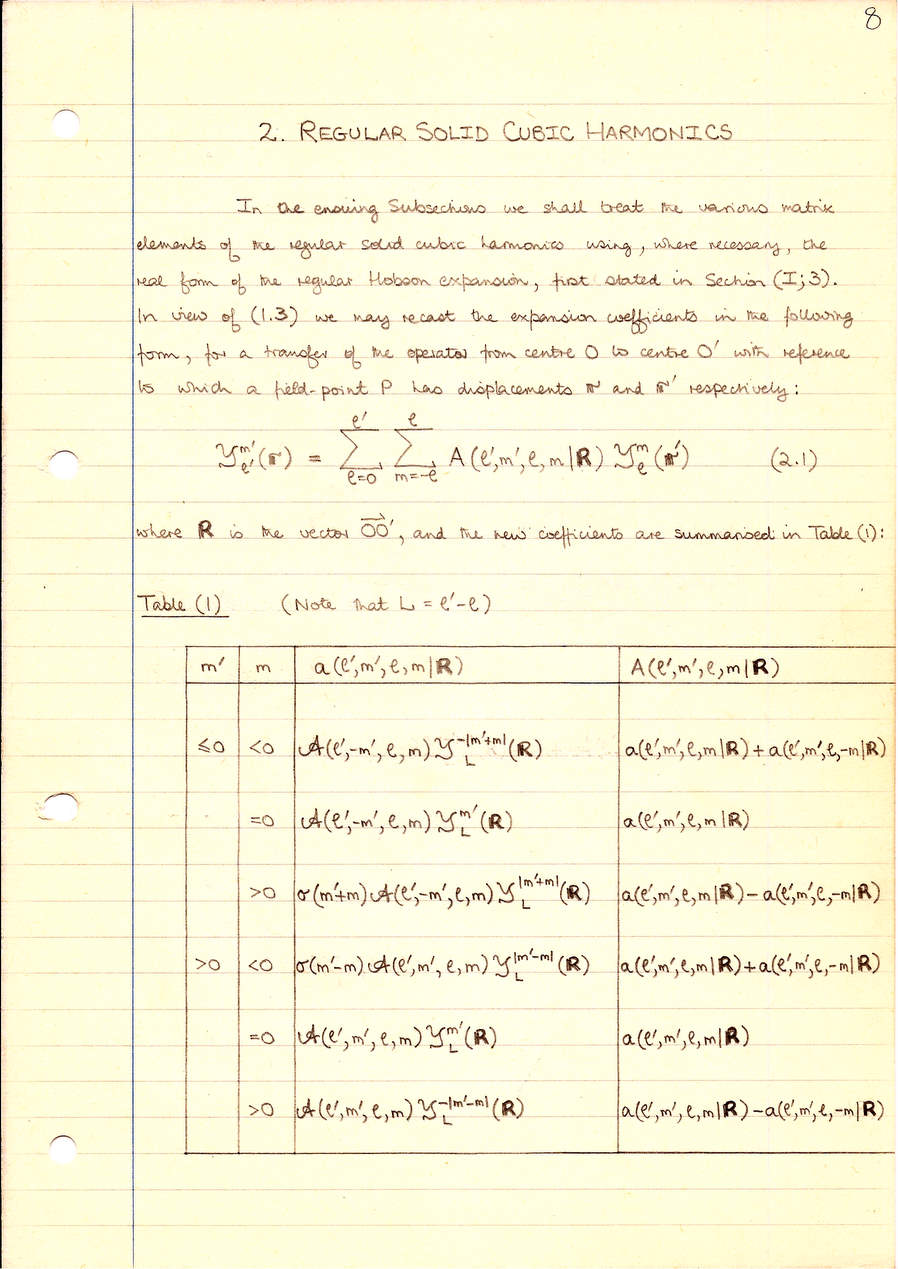 8
2. REGULAR SOLID CUBIC HARMONICS
In the ensuing Subsections we shall treat the various matrix
elements of the regular solid cubic harmonics using, where necessary, the
real form of the regular Hobson expansion, first stated in Section (I;3).
In view of (1.3) we may recast the expansion coefficients in the following
form, for a transfer of the operator from centre O to centre O′ with reference
to which a field-point P has displacements 𝕣 and 𝕣′ respectively:
𝒴ₗ′ᵐ′(𝕣) = ∑ₗ₌₀ˡ′ ∑ₘ₌₋ₗˡ A(ℓ′,m′,ℓ,m|ℝ) 𝒴ₗᵐ(𝕣′) (2.1)
where ℝ is the vector OO′→, and the new coefficients are summarised in Table (1):
Table (1) (Note that L = ℓ′-ℓ)
m′ m a(ℓ′,m′,ℓ,m|ℝ) A(ℓ′,m′,ℓ,m|ℝ)
≤0 <0 𝒜(ℓ′,-m′,ℓ,m) 𝒴_L^{-|m′+m|}(ℝ) a(ℓ′,m′,ℓ,m|ℝ)+a(ℓ′,m′,ℓ,-m|ℝ)
=0 𝒜(ℓ′,-m′,ℓ,m) 𝒴_L^{m′}(ℝ) a(ℓ′,m′,ℓ,m|ℝ)
>0 σ(m′+m)𝒜(ℓ′,-m′,ℓ,m) 𝒴_L^{|m′+m|}(ℝ) a(ℓ′,m′,ℓ,m|ℝ)-a(ℓ′,m′,ℓ,-m|ℝ)
>0 <0 σ(m′-m)𝒜(ℓ′,m′,ℓ,m) 𝒴_L^{|m′-m|}(ℝ) a(ℓ′,m′,ℓ,m|ℝ)+a(ℓ′,m′,ℓ,-m|ℝ)
=0 𝒜(ℓ′,m′,ℓ,m) 𝒴_L^{m′}(ℝ) a(ℓ′,m′,ℓ,m|ℝ)
>0 𝒜(ℓ′,m′,ℓ,m) 𝒴_L^{-|m′-m|}(ℝ) a(ℓ′,m′,ℓ,m|ℝ)-a(ℓ′,m′,ℓ,-m|ℝ)